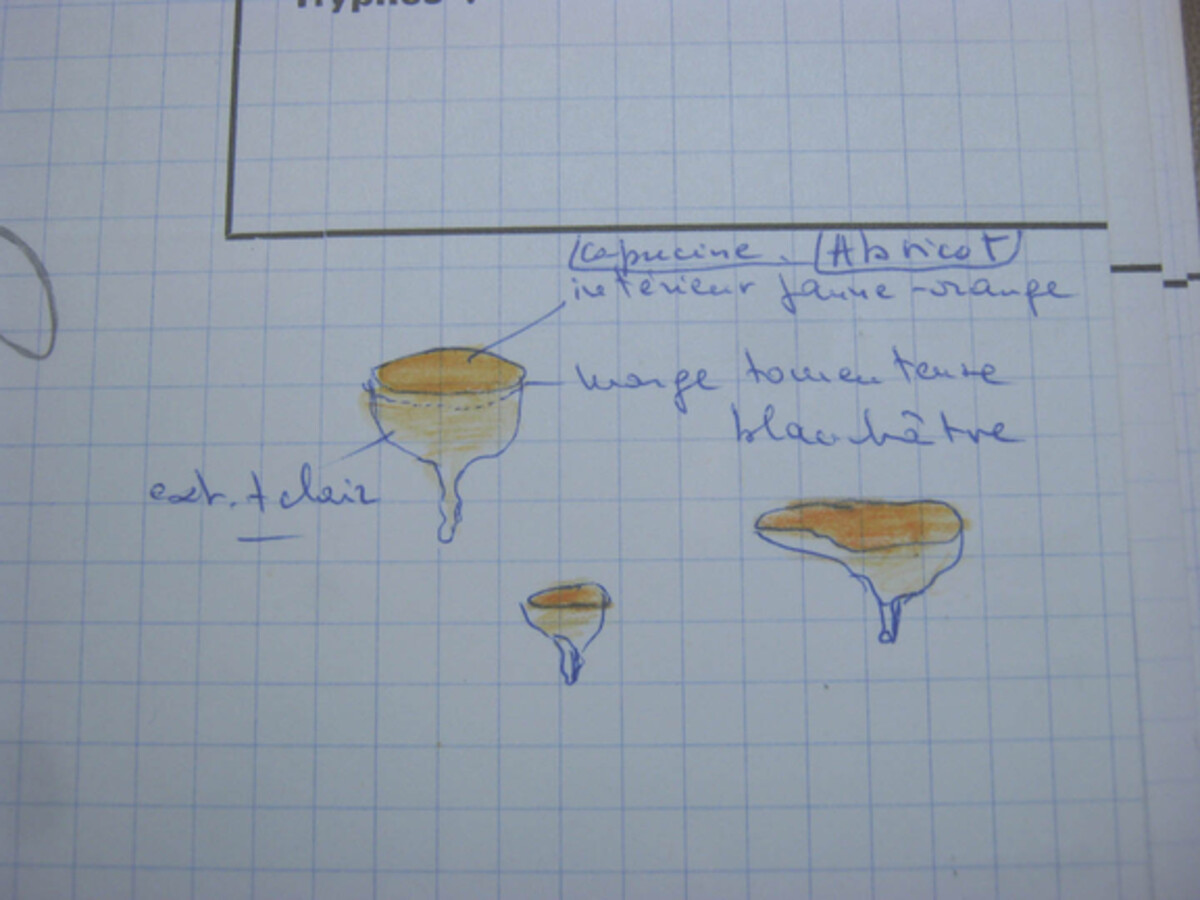 Hyphes :
capucine. Abricot
intérieur jaune-orange
marge tomenteuse
blanchâtre
ext. + clair